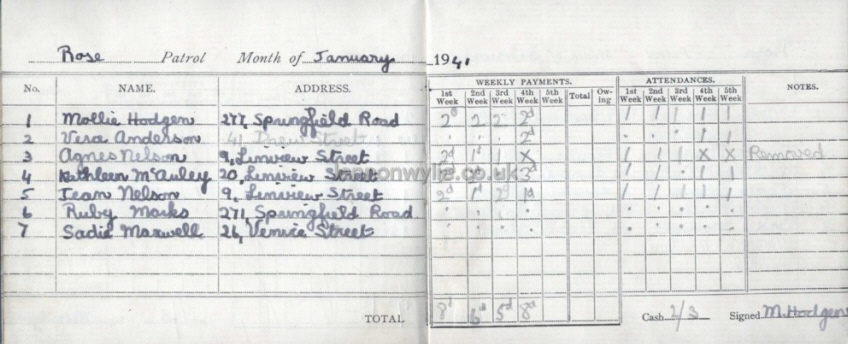 Rose Patrol Month of January 1941
No. NAME. ADDRESS. WEEKLY PAYMENTS. ATTENDANCES. NOTES.
1st Week 2nd Week 3rd Week 4th Week 5th Week Total Ow-ing 1st Week 2nd Week 3rd Week 4th Week 5th Week
1 Mollie Hodgen 277, Springfield Road 2d 2 2 2d / / / / /
2 Vera Anderson 41 Street . . . 2d . . . / /
3 Agnes Nelson 9, Linview Street 2d 1d 1 X / / / X X Removed
4 Kathleen McAuley 20, Linview Street 3d / / . / /
5 Jean Nelson 9, Linview Street 2d 1d 2d 1d / / / / /
6 Ruby Marks 271, Springfield Road . . . . . . . . .
7 Sadie Maxwell 26, Venice Street . . . . . . . . .
TOTAL 8d 6d 5d 8d Cash 2/3 Signed M. Hodgen